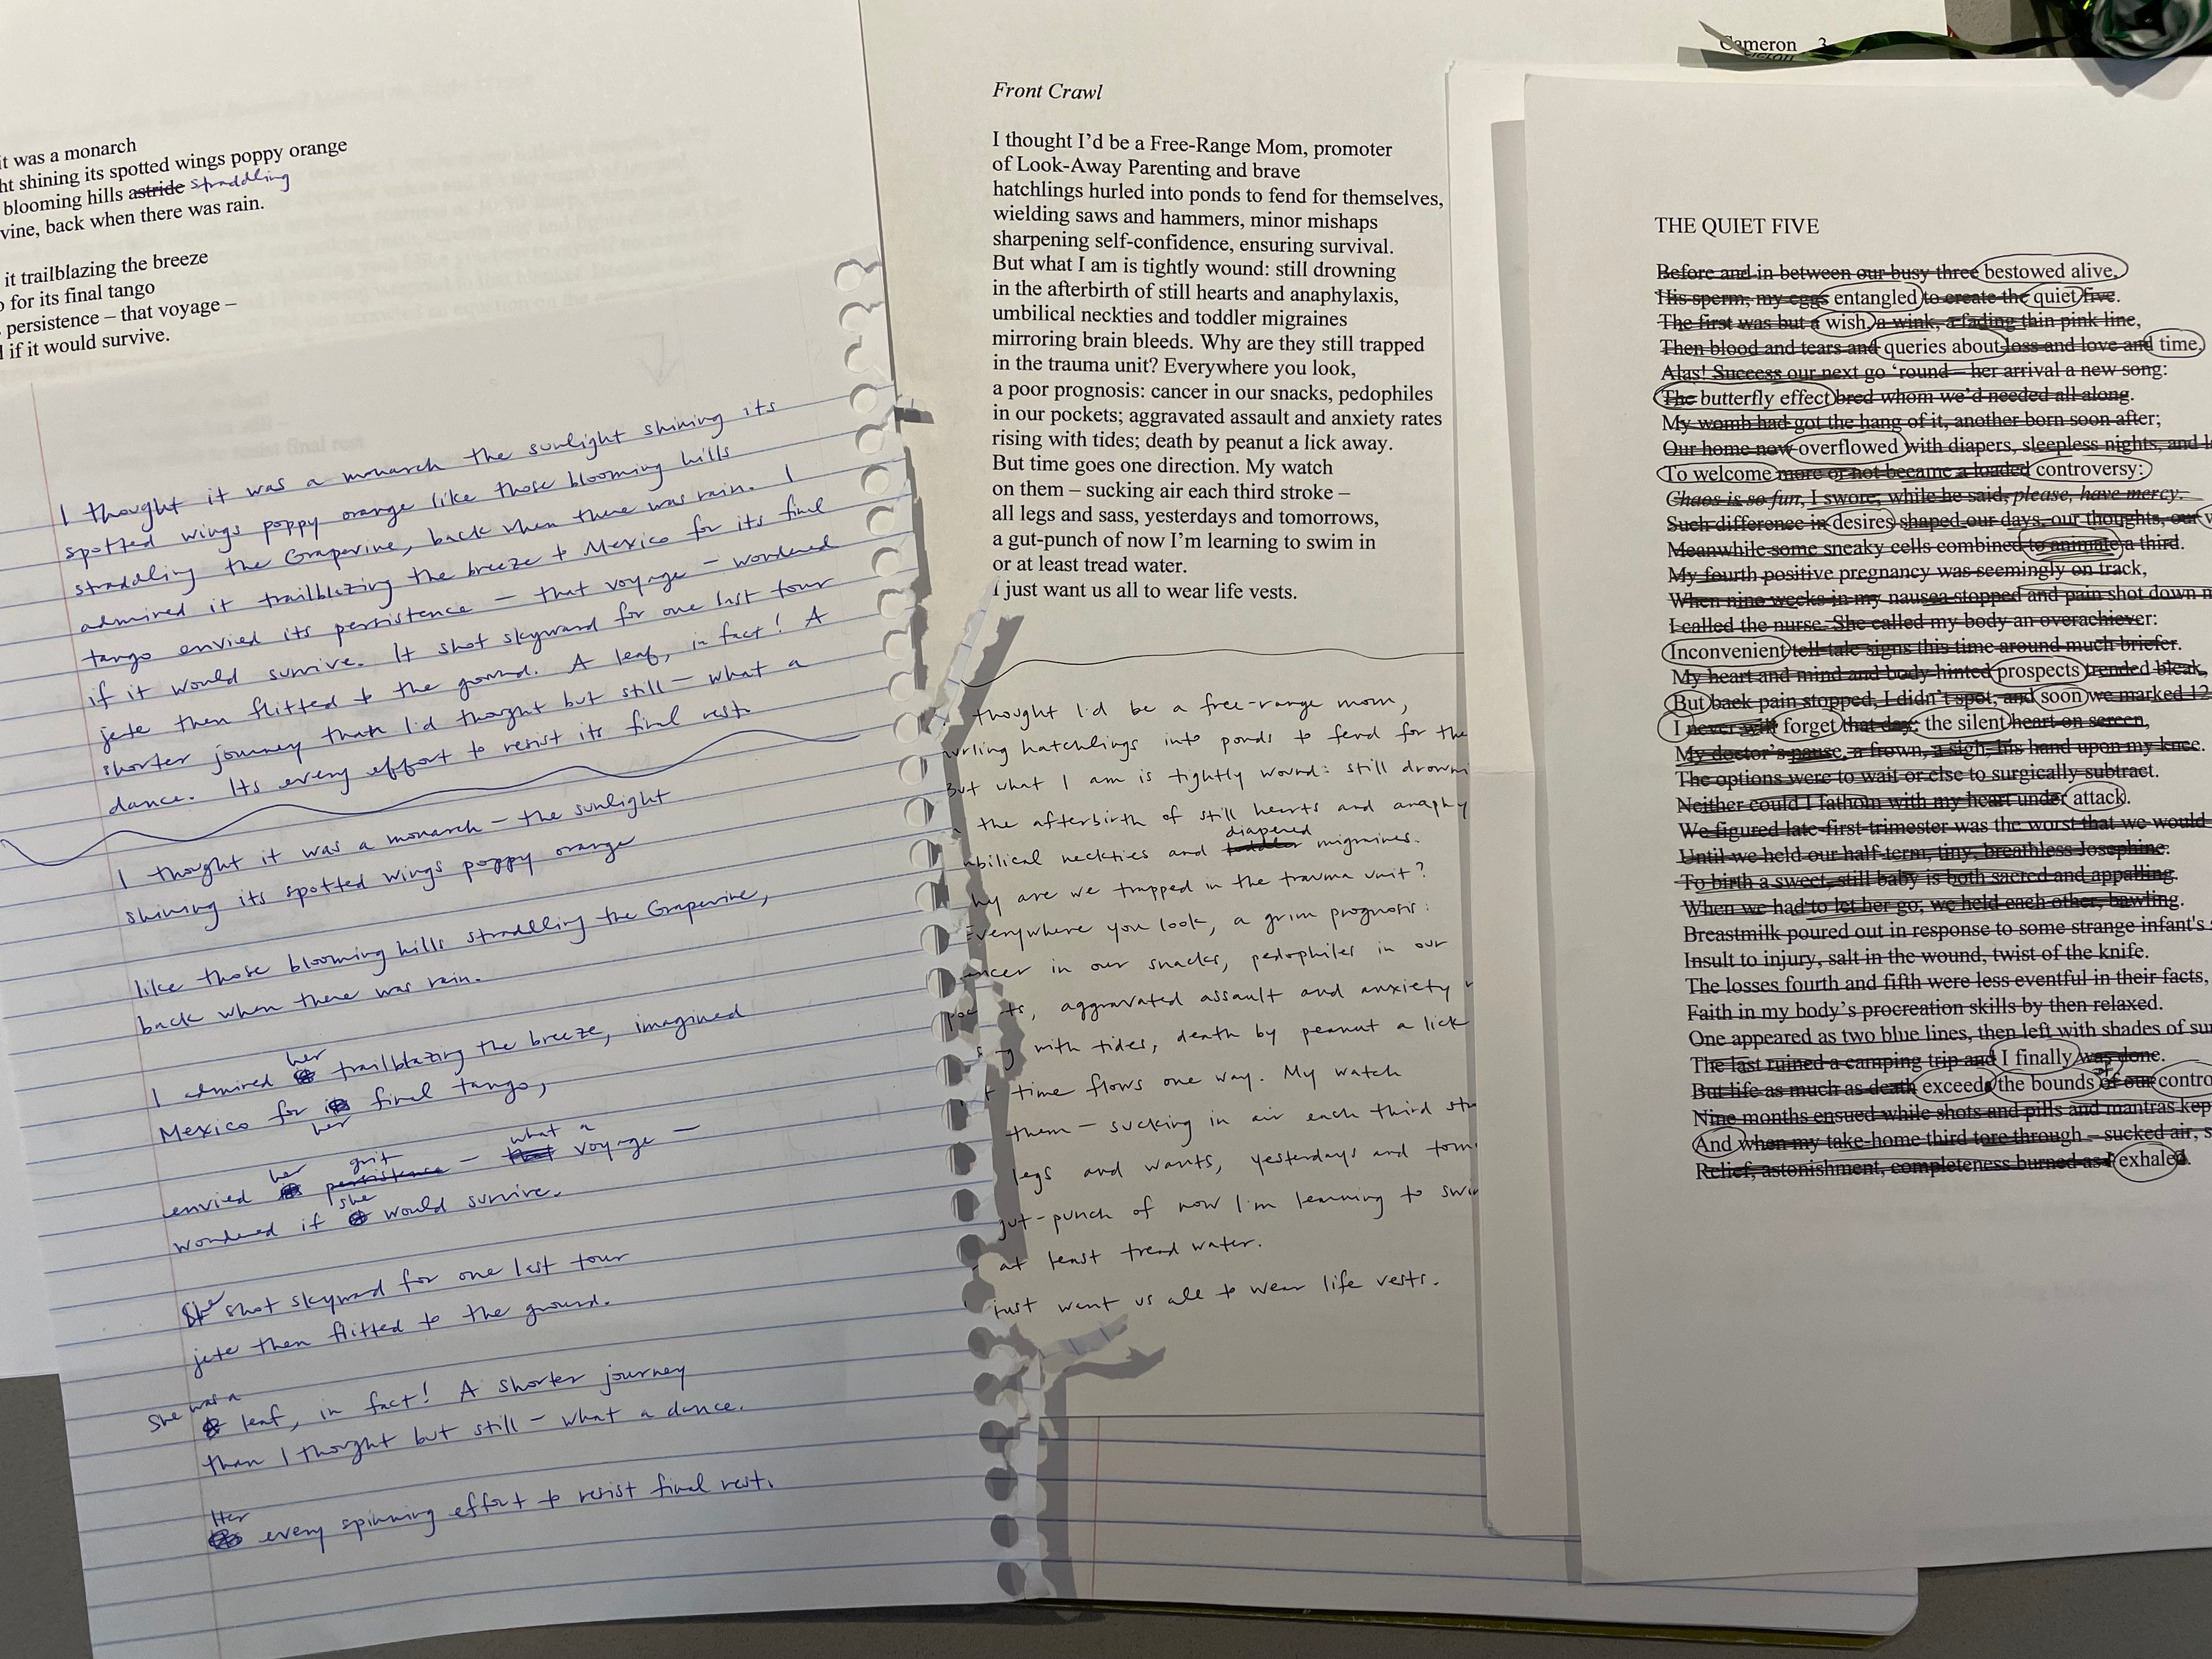 it was a monarch
ht shining its spotted wings poppy orange
blooming hills astride straddling
vine, back when there was rain.
it trailblazing the breeze
for its final tango
persistence – that voyage –
if it would survive.
I thought it was a monarch the sunlight shining its
spotted wings poppy orange like those blooming hills
straddling the Grapevine, back when there was rain. I
admired it trailblazing the breeze to Mexico for its final
tango envied its persistence – that voyage – wondered
if it would survive. It shot skyward for one last tour
jete then flitted to the ground. A leaf, in fact! A
shorter journey than I'd thought but still – what a
dance. Its every effort to resist its final rest.
I thought it was a monarch – the sunlight
shining its spotted wings poppy orange
like those blooming hills straddling the Grapevine,
back when there was rain.
I admired her trailblazing the breeze, imagined
Mexico for her final tango,
envied her persistence grit – that what a voyage –
wondered if she would survive.
She shot skyward for one last tour
jete then flitted to the ground.
She was a leaf, in fact! A shorter journey
than I thought but still – what a dance.
Her every spinning effort to resist final rest.
Cameron 3
Front Crawl
I thought I'd be a Free-Range Mom, promoter
of Look-Away Parenting and brave
hatchlings hurled into ponds to fend for themselves,
wielding saws and hammers, minor mishaps
sharpening self-confidence, ensuring survival.
But what I am is tightly wound: still drowning
in the afterbirth of still hearts and anaphylaxis,
umbilical neckties and toddler migraines
mirroring brain bleeds. Why are they still trapped
in the trauma unit? Everywhere you look,
a poor prognosis: cancer in our snacks, pedophiles
in our pockets; aggravated assault and anxiety rates
rising with tides; death by peanut a lick away.
But time goes one direction. My watch
on them – sucking air each third stroke –
all legs and sass, yesterdays and tomorrows,
a gut-punch of now I'm learning to swim in
or at least tread water.
I just want us all to wear life vests.
thought I'd be a free-range mom,
urling hatchlings into ponds to fend for the
But what I am is tightly wound: still drowni
the afterbirth of still hearts and anaphy
mbilical neckties and toddler diapered migraines.
hy are we trapped in the trauma unit?
Everywhere you look, a grim prognosis:
ancer in our snacks, pedophiles in our
ts, aggravated assault and anxiety
g with tides, death by peanut a lick
time flows one way. My watch
them – sucking in air each third str
legs and wants, yesterdays and tom
gut-punch of now I'm learning to swi
at least tread water.
just want us all to wear life vests.
THE QUIET FIVE
Before and in between our busy three bestowed alive,
His sperm, my eggs entangled to create the quiet five.
The first was but a wish, a wink, a fading thin pink line,
Then blood and tears and queries about loss and love and time.
Alas! Success our next go 'round – her arrival a new song:
The butterfly effect bred whom we'd needed all along.
My womb had got the hang of it, another born soon after;
Our home now overflowed with diapers, sleepless nights, and l
To welcome more or not became a loaded controversy:
Chaos is so fun, I swore, while he said, please, have mercy.
Such difference in desires shaped our days, our thoughts, our v
Meanwhile some sneaky cells combined to animate a third.
My fourth positive pregnancy was seemingly on track,
When nine weeks in my nausea stopped and pain shot down m
I called the nurse. She called my body an overachiever:
Inconvenient tell-tale signs this time around much briefer.
My heart and mind and body hinted prospects trended bleak,
But back pain stopped, I didn't spot, and soon we marked 12
I never will forget that day: the silent heart on screen,
My doctor's pause, a frown, a sigh, his hand upon my knee.
The options were to wait or else to surgically subtract.
Neither could I fathom with my heart under attack.
We figured late-first-trimester was the worst that we would
Until we held our half-term, tiny, breathless Josephine.
To birth a sweet, still baby is both sacred and appalling.
When we had to let her go, we held each other, bawling.
Breastmilk poured out in response to some strange infant's
Insult to injury, salt in the wound, twist of the knife.
The losses fourth and fifth were less eventful in their facts,
Faith in my body's procreation skills by then relaxed.
One appeared as two blue lines, then left with shades of su
The last ruined a camping trip and I finally was done.
But life as much as death exceeds the bounds of our contro
Nine months ensued while shots and pills and mantras kep
And when my take-home third tore through – sucked air, s
Relief, astonishment, completeness burned as I exhaled.